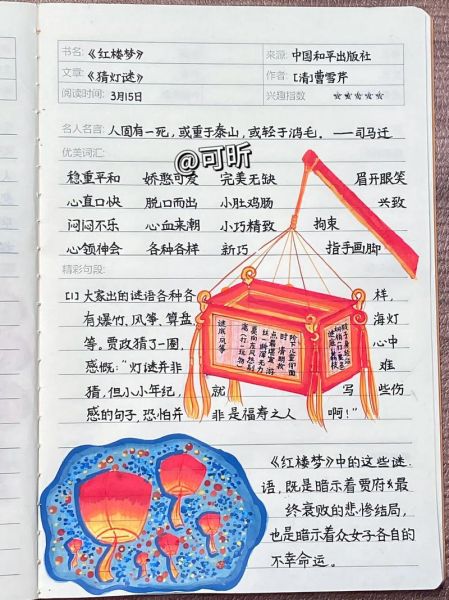 书名:《红楼梦》 来源: 中国和平出版社
文章:《猜灯谜》 作者: [清]曹雪芹
阅读时间: 3月15日 兴趣指数 ☆☆☆☆☆
名人名言: 人固有一死,或重于泰山,或轻于鸿毛。——司马迁
@可昕
优美词汇:
稳重平和 娇憨可爱 完美无缺 眉开眼笑
心直口快 脱口而出 小肚鸡肠 兴致
闷闷不乐 心血来潮 小巧精致 拘束
心领神会 各种各样 新巧 指手画脚
精彩句段:
[1]大家出的谜语各种各样,
有爆竹、风筝、算盘,海灯
等,贾政猜了一圈,心中
感慨:“灯谜并非难
猜,但小小年纪,就写些伤
感的句子,恐怕并非是福寿之人啊!”
谜底风筝
阶下儿童仰面
时,清明妆
点最堪宜。游
丝一断浑无力,
莫向东风怨别
离。(打一玩物)
《红楼梦》中的这些谜
语,既是暗示着贾府最
终衰败的悲惨结局,
也是暗示着众女子各自的
不幸命运。